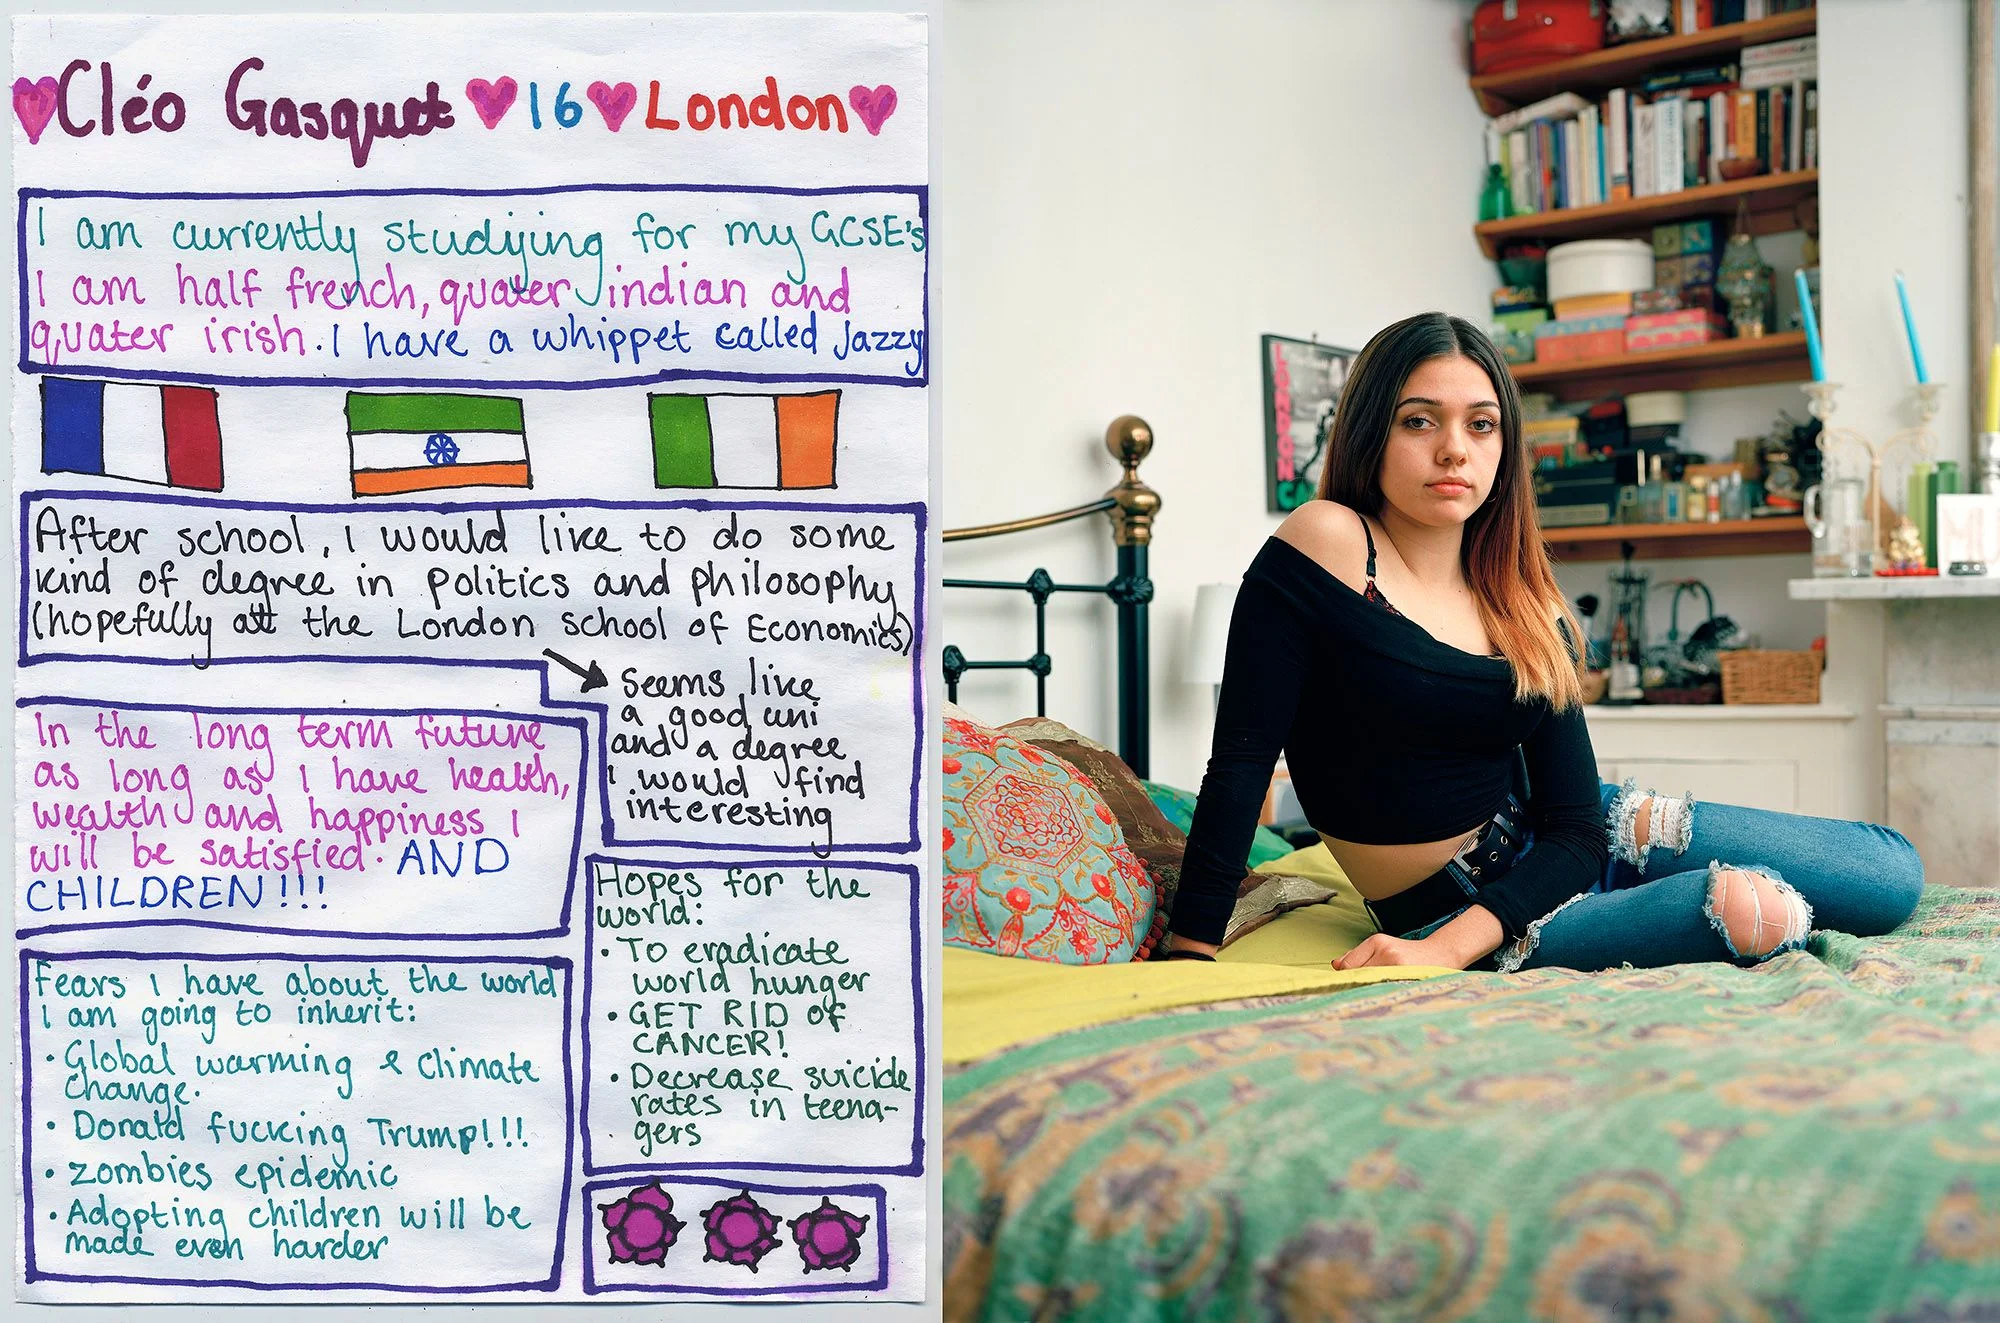 Cléo Gasquet 16 London
I am currently studying for my GCSE's
I am half french, quater indian and
quater irish. I have a whippet called Jazzy
After school, I would like to do some
kind of degree in politics and philosophy
(hopefully at the London school of Economics)
Seems like
a good uni
and a degree
I would find
interesting
In the long term future
as long as I have health,
wealth and happiness I
will be satisfied. AND
CHILDREN!!!
Hopes for the
world:
• To eradicate
world hunger
• GET RID OF
CANCER!
• Decrease suicide
rates in teena-
gers
Fears I have about the world
I am going to inherit:
• Global warming & climate
change.
• Donald fucking Trump!!!
• zombies epidemic
• Adopting children will be
made even harder
LONDON